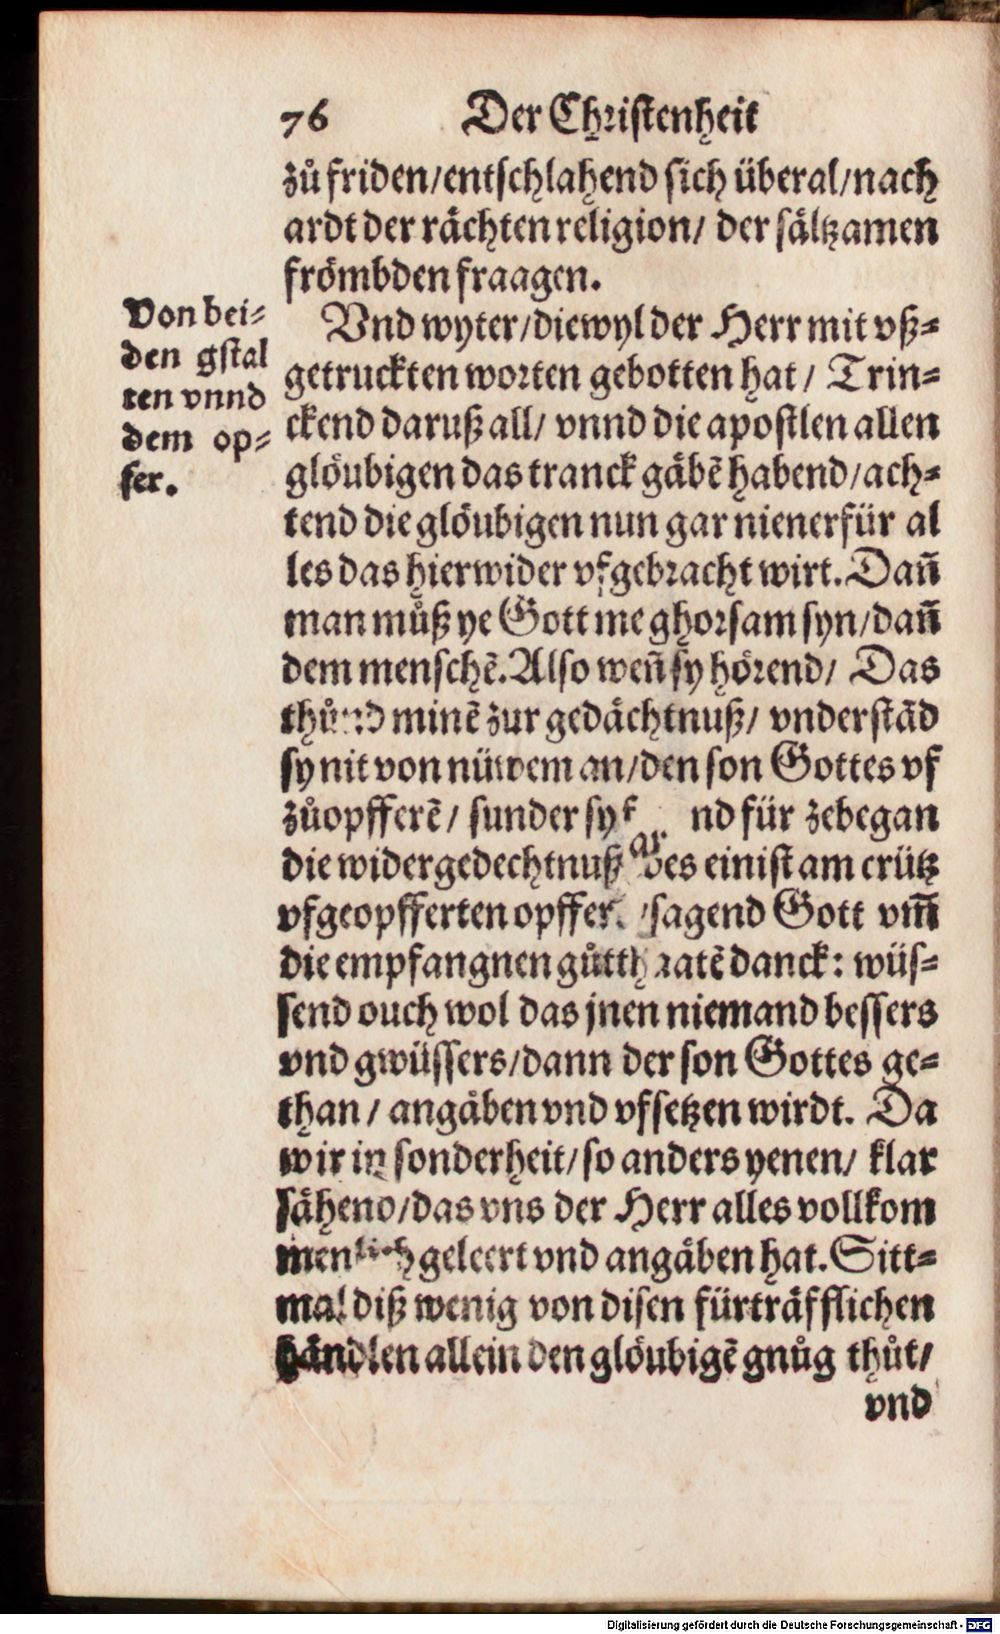 76 Der Christenheit
zů friden/entschlahend sich überal/nach
ardt der rächten religion/ der sältzamen
frömbden fraagen.
Von bei-
den gstal
ten vnnd
dem op-
fer.
Vnd wyter/diewyl der Herr mit vß-
getruckten worten gebotten hat/ Trin-
ckend daruß all/ vnnd die apostlen allen
glöubigen das tranck gäbē habend/ach-
tend die glöubigen nun gar nienerfür al
les das hierwider vfgebracht wirt. Dañ
man můß ye Gott me ghorsam syn/dañ
dem menschē. Also weñ sy hörend/ Das
minē zur gedächtnuß/ vnderstād
sy nit von nüwem an/den son Gottes vf
zůopfferē/ sunder sy für zebegan
die widergedechtnuß des einist am crütz
vfgeopfferten opffer /sagend Gott vm̄
die empfangnen gůtthaatē danck: wüs-
send ouch wol das jnen niemand bessers
vnd gwüssers/dann der son Gottes ge-
than/ angäben vnd vfsetzen wirdt. Da
wir in sonderheit/so anders yenen/ klar
sähend/das vns der Herr alles vollkom
menlich geleert vnd angäben hat. Sitt-
mal diß wenig von disen fürträfflichen
händlen allein den glöubigē gnůg thůt/
vnd
Digitalisierung gefördert durch die Deutsche Forschungsgemeinschaft - DFG